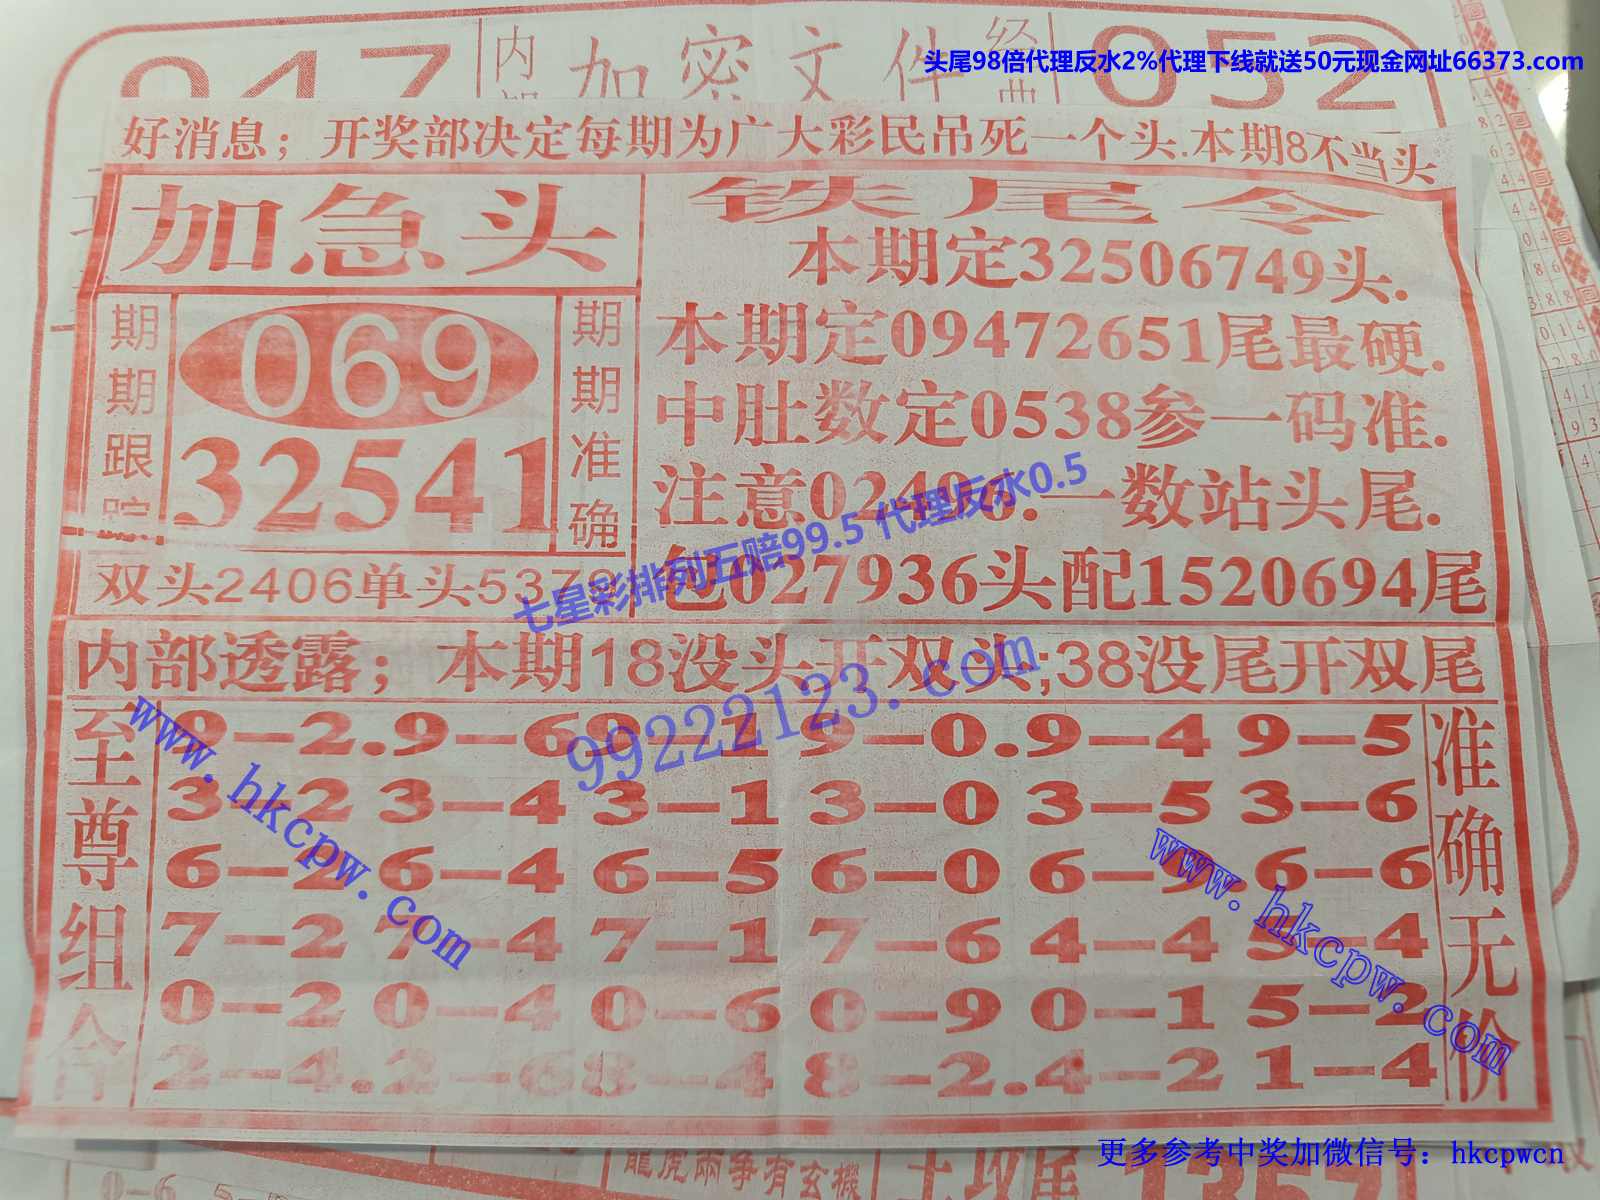 047
内
加密文件
经典
052
头尾98倍代理反水2%代理下线就送50元现金网址66373.com
好消息；开奖部决定每期为广大彩民吊死一个头.本期8不当头
加急头
期期跟踪
069
32541
期期准确
双头2406单头537
铁尾令
本期定32506749头.
本期定09472651尾最硬.
中肚数定0538参一码准.
注意02496.一数站头尾.
包027936头配1520694尾
七星彩排列五赔99.5 代理反水0.5
内部透露；本期18没头开双头;38没尾开双尾
99222123.com
至尊组合
9-2.9-6 9-1 9-0.9-4 9-5
3-2 3-4 3-1 3-0 3-5 3-6
6-2 6-4 6-5 6-0 6-9 6-6
7-2 7-4 7-1 7-6 4-4 5-4
0-2 0-4 0-6 0-9 0-1 5-2
2-4.2-6 8-4 8-2.4-2 1-4
准确无价
www.hkcpw.com
www.hkcpw.com
更多参考中奖加微信号：hkcpwcn
0-6
龍虎兩争有玄機
1357